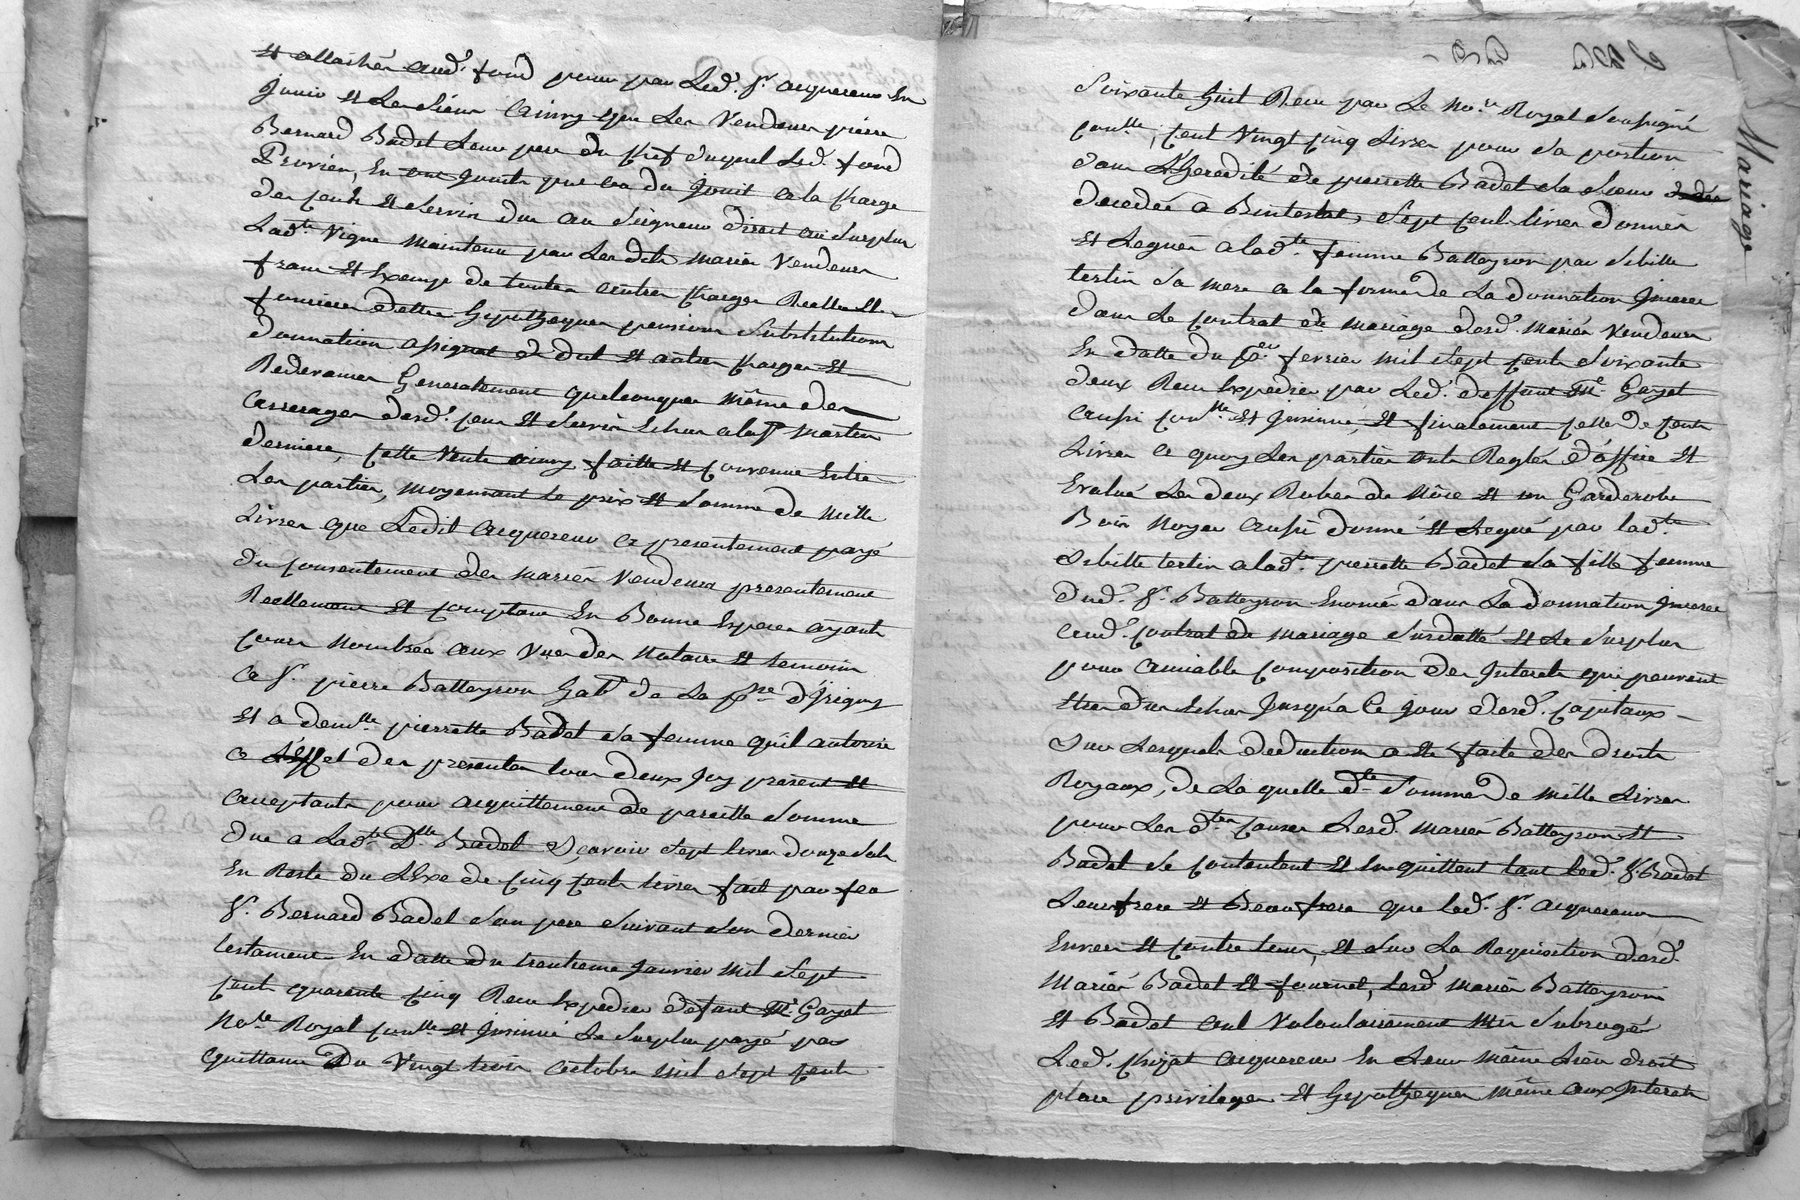 Et attachés aud.t fond pour par Led. Sr. acquereur En
Jouir et Les Siens ainsy que Les Vendeurs pierre
Bernard Badet Leur pere du Chef duquel Led. fond
Provien, En ont Jouit ou du Jouir a la Charge
des Cens et Servis dus au Seigneur Direct au Surplus
Ladte Vigne maintenue par Les dits mariés Vendeurs
franche et Exempte de toutes autres Charges Reelles
foncieres dettes hypotheques pensions Substitutions
donnation assignat de dot et autres Charges et
Redevances Generalement quelconques même des
arrerages desd. cens et Servis Echus a la St martin
derniere, cette Vente ainsy faitte et Convenue Entre
Les parties, moyennant le prix et Somme de mille
Livres que Ledit acquereur a presentement payé
du Consentement des mariés Vendeurs presentement
Reellement et comptant En Bonne Especes ayants
cours nombrée aux Vues des Notaire et temoins
a Sr. pierre Batteyron habt de La psse d'Irigny
et a demlle pierrette Badet sa femme qu'il autorise
a L'Effet des presentes tous deux Icy presents et
acceptants pour acquittement de pareille Somme
due a Ladte Dlle Badet Scavoir Sept Livres douze Sols
En Reste du Legs de Cinq Cents Livres fait par feu
Sr. Bernard Badet Son pere Suivant Son dernier
testament En datte du trentieme Janvier mil Sept
Cents quarante Cinq Receu Expedié deffunt Me. Gayet
Nore Royal Conlle et Insinué Le Surplus payé par
quittance Du Vingt trois octobre mil Sept Cents
Soixante huit Receu par Le Nore Royal Soussigné
Conlle, Cent Vingt Cinq Livres pour Sa portion
dans L'heredité de pierrette Badet Sa Soeur
decedée a Bintestat, Sept Cents Livres Donnés
et Legués a ladte femme Batteyron par Sibille
terlin Sa mere a la forme de La donnation Inserée
dans Le Contrat de mariage desd. mariés Vendeurs
En datte du Per fevrier mil Sept Cents Soixante
deux Receu Expedié par Led. deffunt Me. Gayet
aussi Conlle et Insinué, et finalement Celle de Cents
Livres a quoy Les parties ont Reglés d'office et
Evalué Les deux Robes de Nôce et un Garderobe
Bois Noyer aussi donné et Legué par ladte
Sibille terlin a ladte pierrette Badet Sa fille femme
dud. Sr. Batteyron Enoncés dans La donnation Inserée
aud. Contrat de mariage Surdatté et Le Surplus
pour amiable Composition des Interets qui peuvent
Etre dus Echus Jusqu'a Ce Jour desd. Capitaux
Sur Lesquels deduction a Eté faite des droits
Royaux, de La quelle dte Somme de mille Livres
pour Les dtes Causes Lesd. mariés Batteyron et
Badet Se Contentent et En quittent tant Led. Sr. Badet
Leur frere et Beaufrere que led. Sr. acquereur
Envers et Contre tous, et Sur La Requisition desd.
mariés Badet et fournel, Lesd. mariés Batteyron
et Badet ont Volontairement mis Subrogés
Led. Chizat acquereur En Leur même Lieu droit
place privileges et hypotheques même aux Interets
Mariage